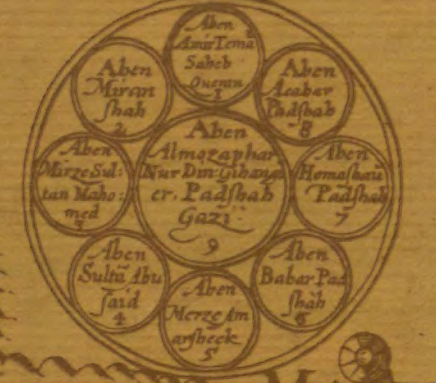 Aben
Amir Tema
Saheb
Queran
1
Aben
Miran
shah
2
Aben
Mirze Sul:
tan Maho:
med
3
Aben
Sultū Abu
said
4
Aben
Merze Am
arsheek
5
Aben
Babar Pad
shah
6
Aben
Homashau
Padshah
7
Aben
Acabar
Padshah
8
Aben
Almozaphar
Nur Din Gihang
er. Padshah
Gazi
9